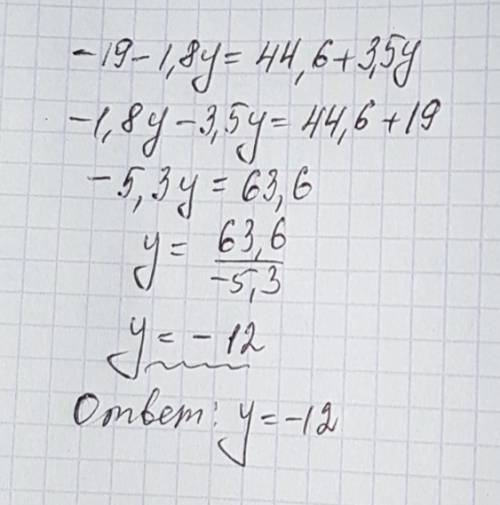 -19-1,8y=44,6+3,5y
-1,8y-3,5y=44,6+19
-5,3y=63,6
y=63,6/-5,3
y=-12
Ответ: y=-12